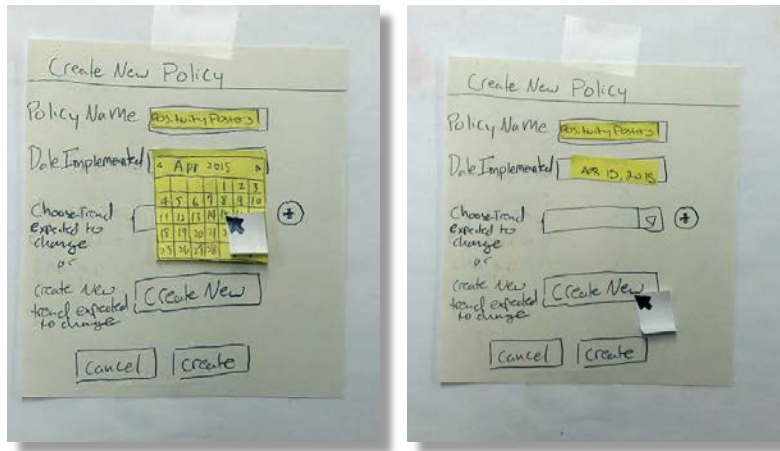 Create New Policy
Policy Name Positivity Posters
Date Implemented
Apr 2015
1 2 3
4 5 6 7 8 9 10
11 12 13 14
18 19 20 21
25 26 27 28
Choose Trend
Expected to
change
or
Create New
trend expected
to change
Create New
Cancel Create
Create New Policy
Policy Name Positivity Posters
Date Implemented APR 15, 2015
Choose Trend
Expected to
change
or
Create New
trend expected
to change
Create New
Cancel Create